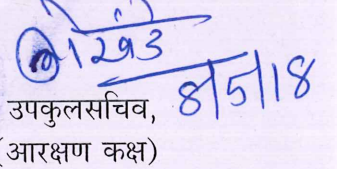 8/5/18
उपकुलसचिव,
(आरक्षण कक्ष)